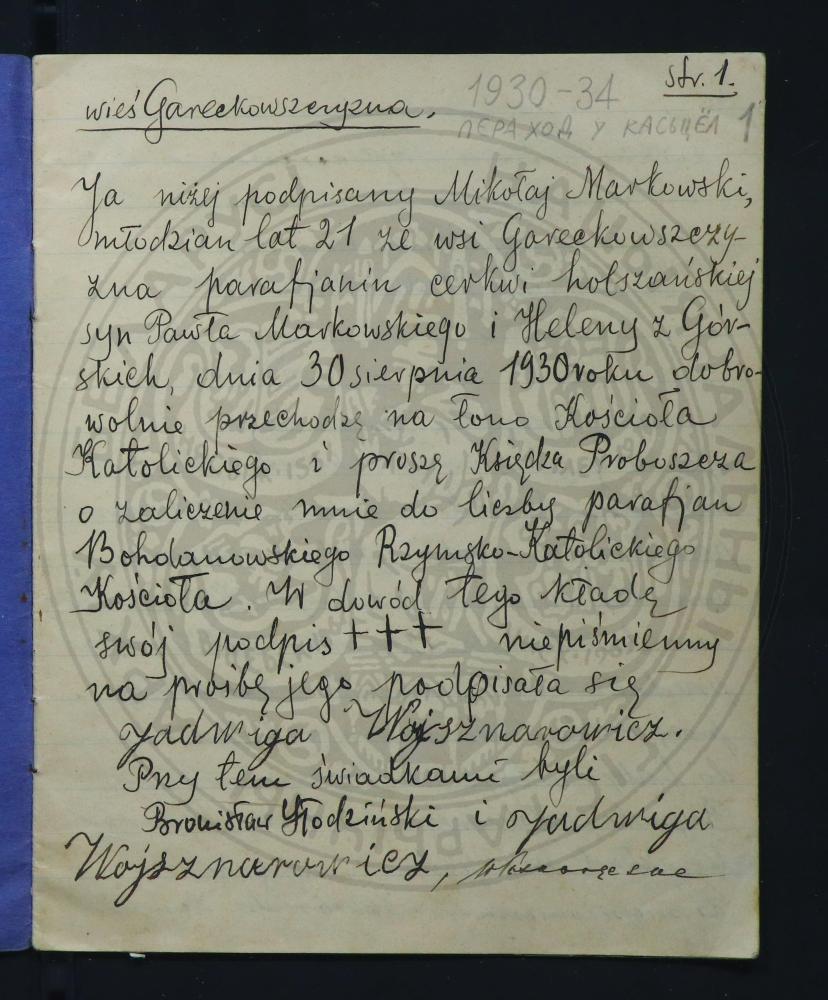 str. 1.
1930-34
wieś Gareckowszczyzna.
ПЕРАХОД У КАСЬЦЁЛ 1
Ja niżej podpisany Mikołaj Markowski,
młodzian lat 21 ze wsi Gareckowszczy-
zna parafjanin cerkwi holszańskiej
syn Pawła Markowskiego i Heleny z Gór-
skich, dnia 30 sierpnia 1930 roku dobro-
wolnie przechodzę na łono Kościoła
Katolickiego i proszę Księdza Proboszcza
o zaliczenie mnie do liczby parafjan
Bohdanowskiego Rzymsko-Katolickiego
Kościoła. W dowód tego kładę
swój podpis +++ niepiśmienny
na proibę jego podpisała się
Jadwiga Wojsznarowicz.
Przy tem świadkami byli
Bronisław i Jadwiga
Wojsznarowicz,